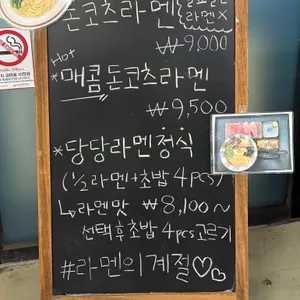 돈코츠라멘
라멘X
₩9,000
Hot
*매콤돈코츠라멘
₩9,500
*당당라멘정식
(½라멘+초밥 4pcs)
↳라멘맛 ₩8,100~
선택 후 초밥 4pcs고르기
#라멘의계절♡♡